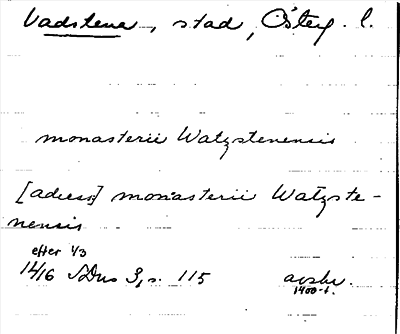 Vadstena, stad, Österg. l.
monasterii Watzstenensis
[adress] monasterii Watzste-
nensis
efter 1/3
1416 SDns 3, s. 115 avskr.
1400-t.